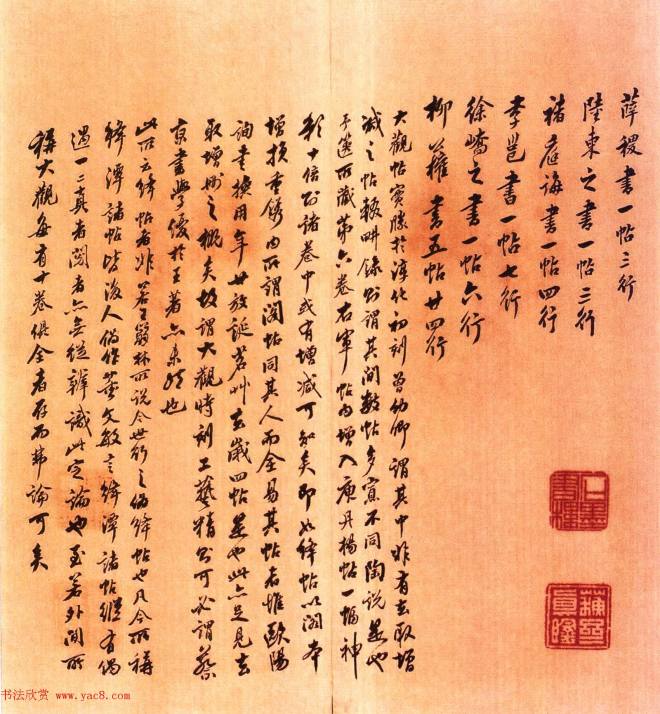 薛稷書一帖三行
陸東之書一帖三行
褚庭誨書一帖四行
李邕書一帖七行
徐嶠之書一帖六行
柳公權書五帖廿四行
大觀帖實勝於淳化初刻曾幼卿謂其中非有去取增
減之帖輟畊錄則謂其間數帖多寡不同陶說是也
予篋所藏第六卷右軍帖內增入庾丹楊帖一幅神
彩十倍則諸卷中或有增減可知矣即如絳帖以閣本
增損重鎸內所謂閣帖同其人而全易其帖者惟歐陽
詢書換用年廿放誕若艸玄歲四帖是也此亦足見去
取增刪之概矣故謂大觀時刻工藝精則可必謂蔡
京書學優於王著亦未然也
此所云絳帖者非若王箬林所說今世所之偽絳帖也凡今所稱
絳潭諸帖皆後人偽作董文敏言絳潭諸帖縱有偶
過一二真者閱者亦無從辨識此定論也至若外間所
稱大觀每有十卷俱全者存而弗論可矣
书法欣赏 www.yac8.com